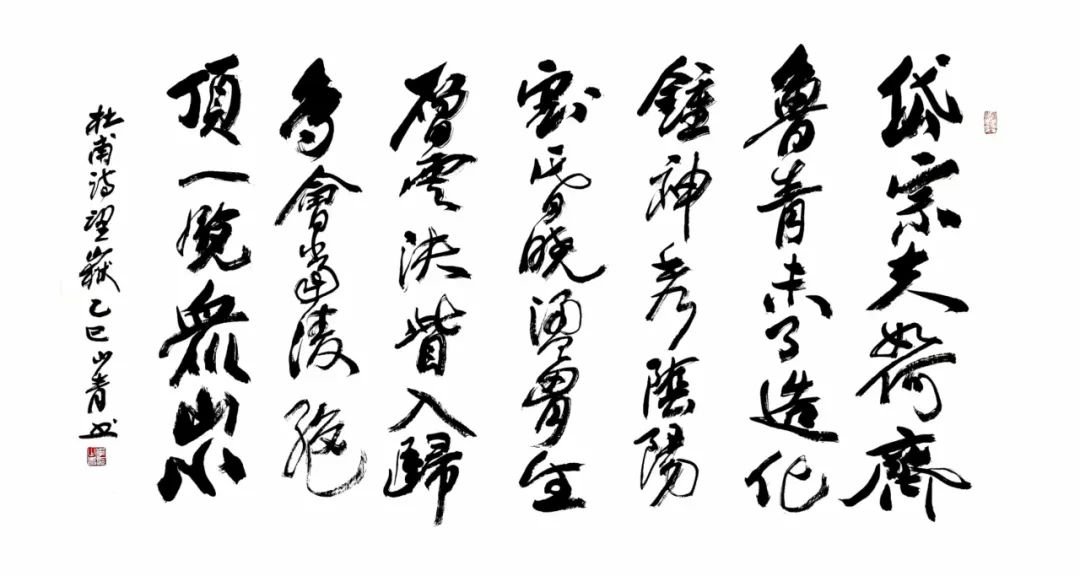 岱宗夫如何齊
魯青未了造化
鍾神秀陰陽
割昏曉盪胷生
層雲決眥入歸
鳥會當凌絕
頂一覽眾山小
杜甫詩望嶽乙巳山青書